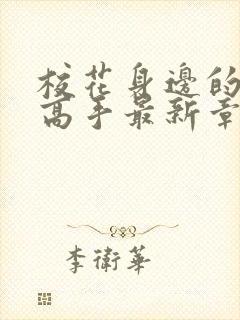 校花身邊的
高手最新章
李衛華